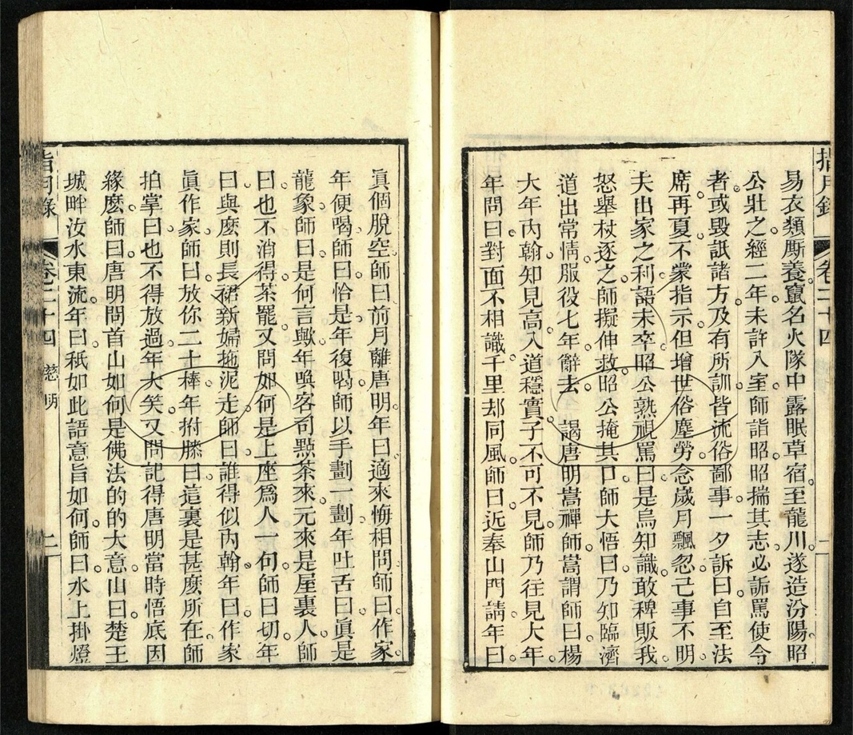 易衣類厮養竄名火隊中露眠草宿至龍川遂造汾陽昭
公壯之經二年未許入室師詣昭昭揣其志必詬罵使令
者或毀詆諸方及有所訓皆流俗鄙事一夕訴曰自至法
席再夏不蒙指示但增世俗塵勞念歲月飄忽己事不明
失出家之利語未卒昭公熟視罵曰是烏知識敢稗販我
怒舉杖逐之師擬伸救昭公掩其口師大悟曰乃知臨濟
道出常情服役七年辭去謁唐明嵩禪師嵩謂師曰楊
大年內翰知見高入道穩實子不可不見師乃往見大年
年問曰對面不相識千里却同風師曰近奉山門請年曰
指月錄 卷二十四
真個脫空師曰前月離唐明年曰適來悔相問師曰作家
年便喝師曰恰是年復喝師以手劃一劃年吐舌曰眞是
龍象師曰是何言歟年喚客司點茶來元來是屋裏人師
曰也不消得茶罷又問如何是上座爲人一句師曰切年
曰與麽則長裙新婦拖泥走師曰誰得似內翰年曰作家
眞作家師曰放你二十棒年拊膝曰這裏是甚麽所在師
拍掌曰也不得放過年大笑又問記得唐明當時悟底因
緣麽師曰唐明問首山如何是佛法的的大意山曰楚王
城畔汝水東流年曰秪如此語意旨如何師曰水上掛燈
指月錄 卷二十四 慈明 二